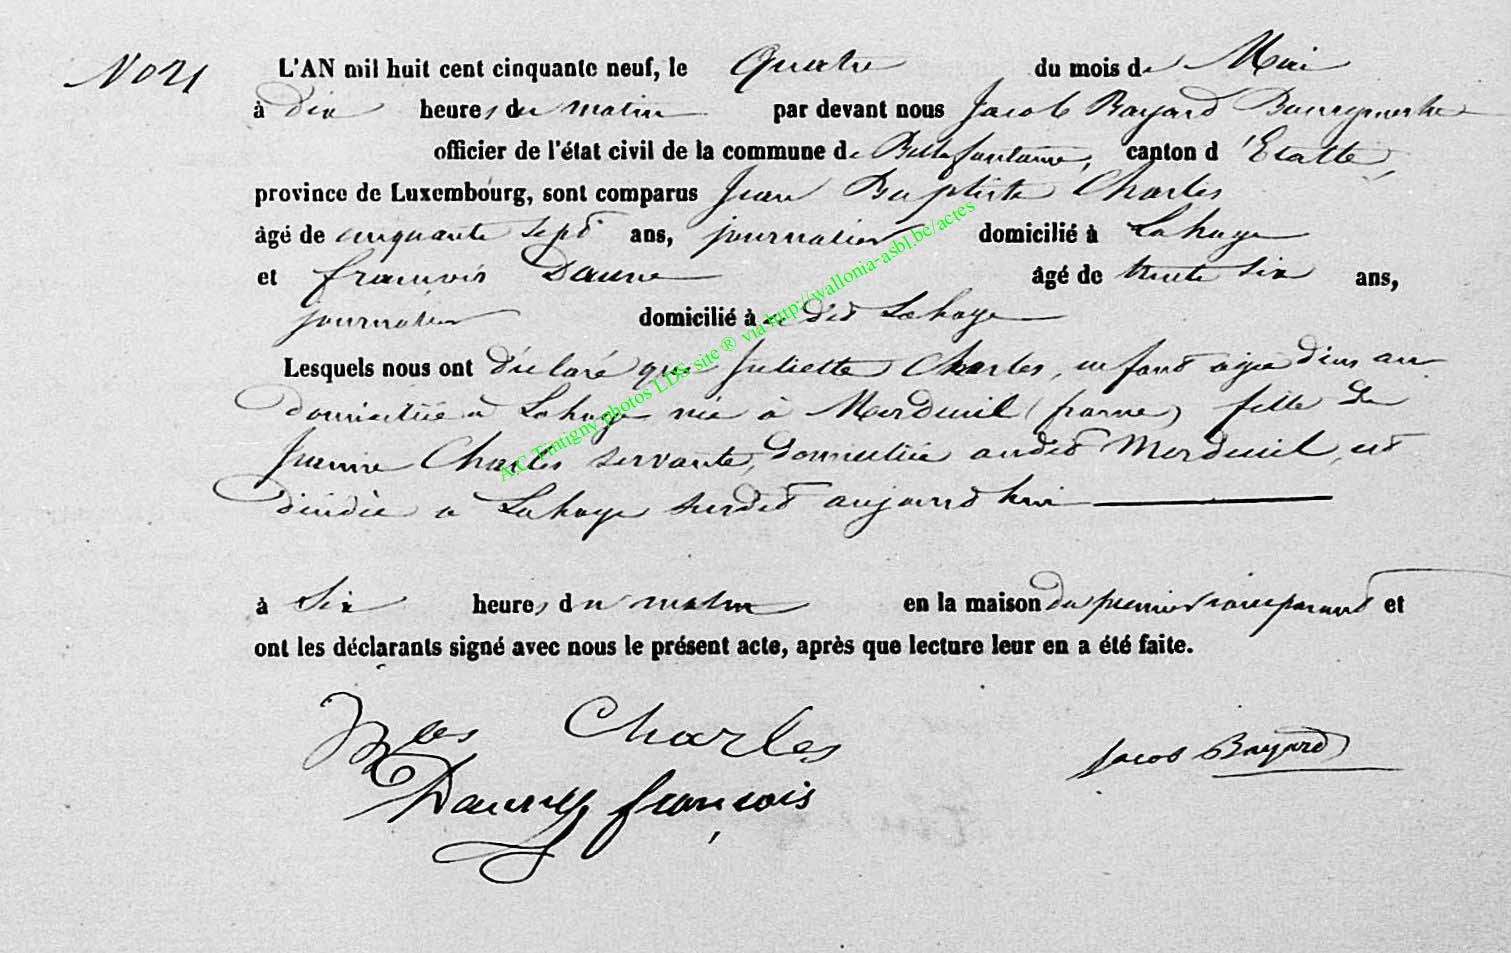 No 21
L'AN mil huit cent cinquante neuf, le Quatre du mois de Mai
à dix heures du matin par devant nous Jacob Bayard Bourgmestre
officier de l'état civil de la commune de Bellefontaine, canton d'Etalle,
province de Luxembourg, sont comparus Jean Baptiste Charles
âgé de cinquante sept ans, journalier domicilié à Lahage
et françois Daune âgé de trente six ans,
journalier domicilié à dit Lahage
Lesquels nous ont déclaré que Juliette Charles, enfant agée d'un an
domiciliée à Lahage née à Merdeuil (farne) fille de
Jeanne Charles servante, domiciliée audit Merdeuil, est
décédée a Lahage susdit aujourd'hui
à six heures du matin en la maison du premier comparant et
ont les déclarants signé avec nous le présent acte, après que lecture leur en a été faite.
Charles
Jacob Bayard
Dauny françois
A.C Tintigny photos LDS site ® via http://wallonia-asbl.be/actes